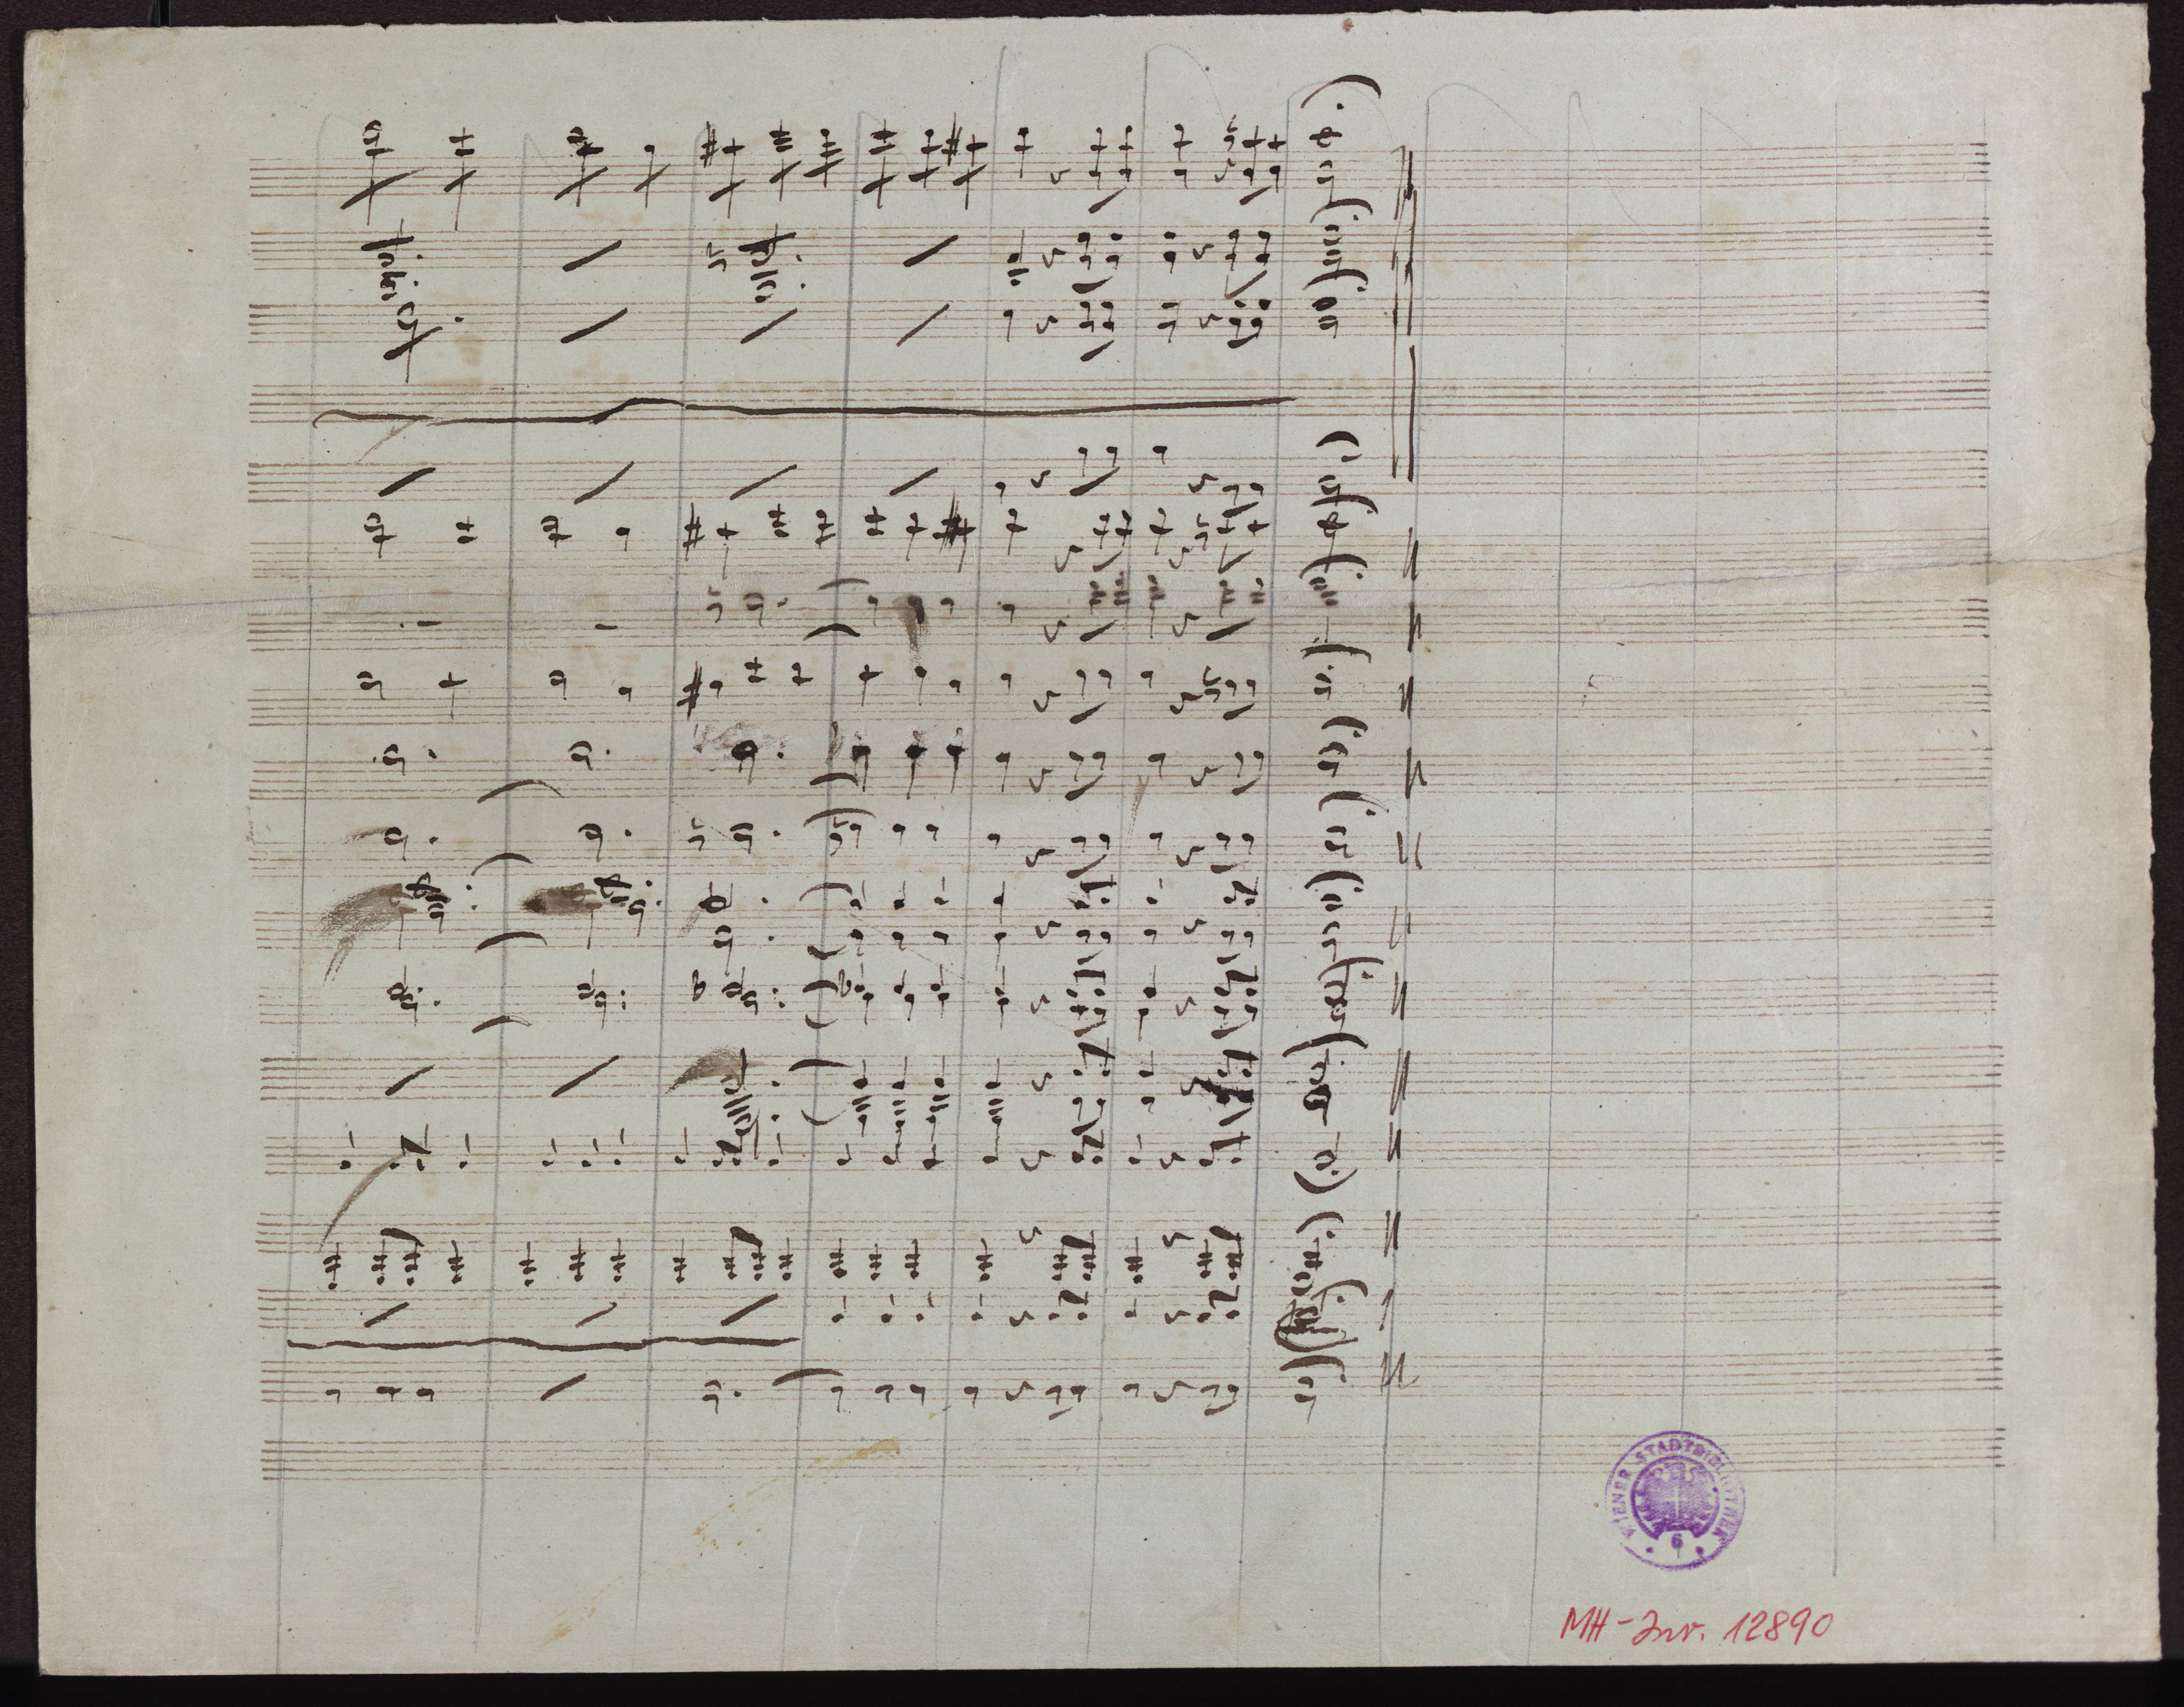 WIENER STADTBIBLIOTHEK
6
MH-Inv. 12890